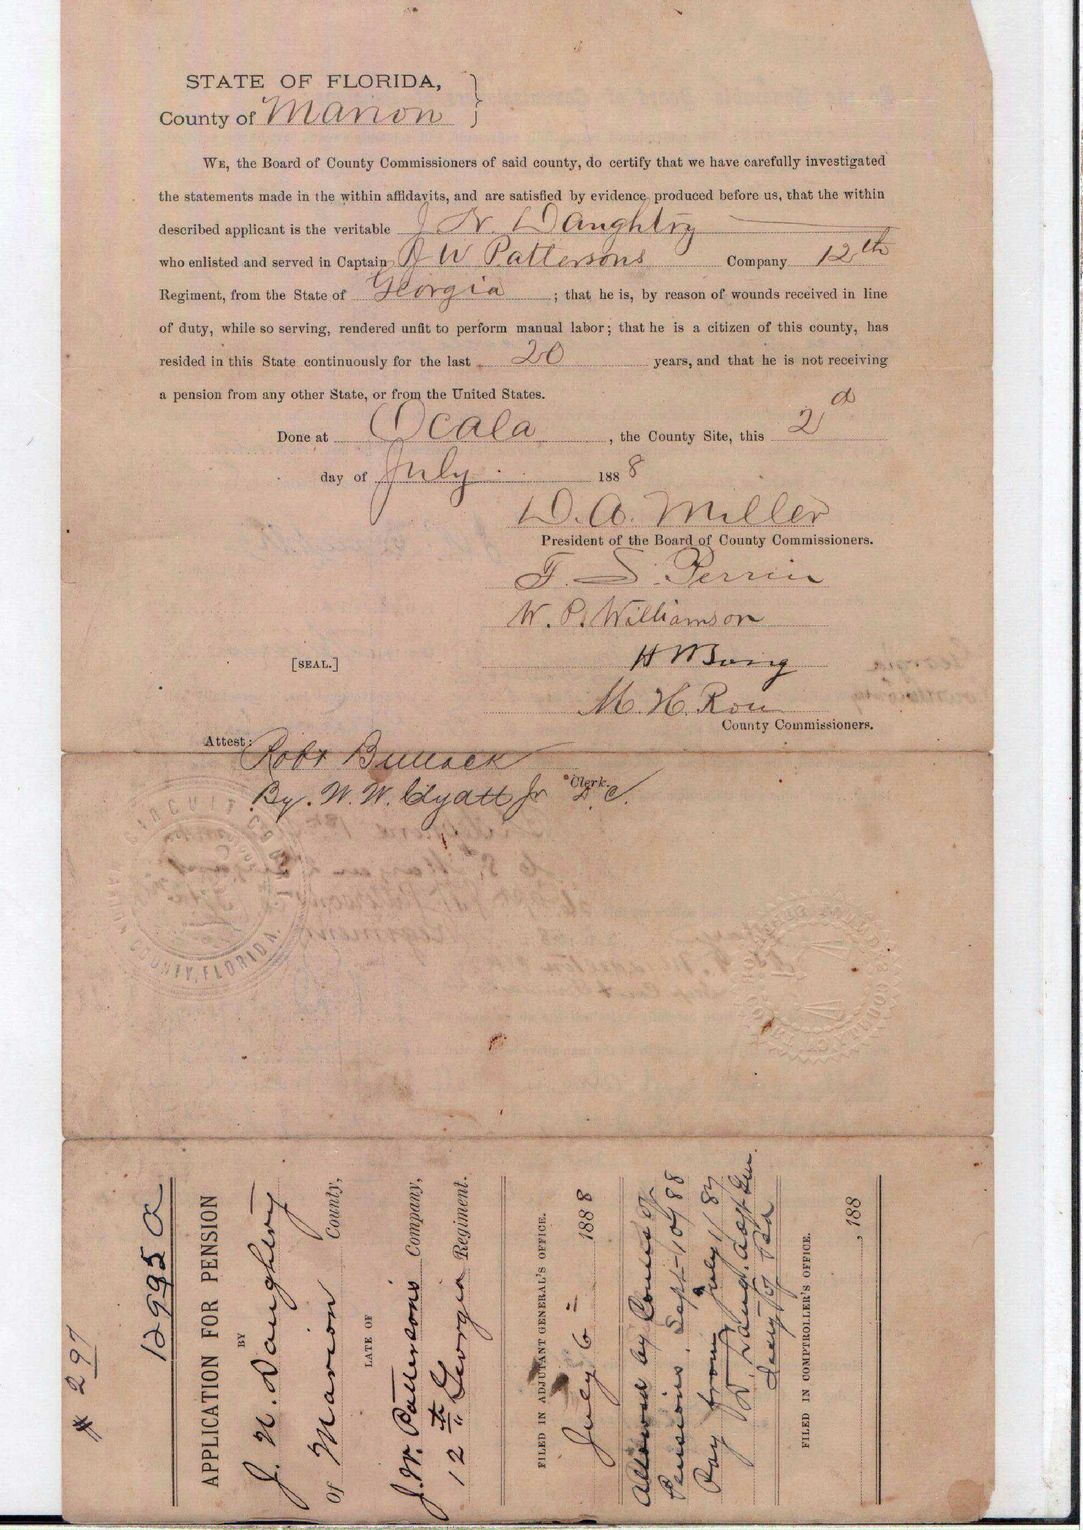 STATE OF FLORIDA,
County of Marion
WE, the Board of County Commissioners of said county, do certify that we have carefully investigated
the statements made in the within affidavits, and are satisfied by evidence produced before us, that the within
described applicant is the veritable J N. Daughtry
who enlisted and served in Captain J W Pattersons Company 12th
Regiment, from the State of Georgia ; that he is, by reason of wounds received in line
of duty, while so serving, rendered unfit to perform manual labor; that he is a citizen of this county, has
resided in this State continuously for the last 20 years, and that he is not receiving
a pension from any other State, or from the United States.
Done at Ocala, the County Site, this 2d
day of July 1888
D. A. Miller
President of the Board of County Commissioners.
F. S. Perrin
W. P. Williamson
[SEAL.]
M. H. Rou
County Commissioners.
Attest: Robt Bullock
Clerk.
By. W. W. Clyatt Jr D. C.
CIRCUIT COURT
COUNTY, FLORIDA.
# 297
12995 A
APPLICATION FOR PENSION
BY
J. N. Daughtry
Of Marion County,
LATE OF
J. W. Pattersons Company,
12th Georgia Regiment.
FILED IN ADJUTANT GENERAL'S OFFICE.
July 6 = 1888
Allowed by Comrs of
Pensions. Sept-10/88
Pay from July 1/87
D. Lang. Adjt Gen.
Secy of Bd
FILED IN COMPTROLLER'S OFFICE.
, 188